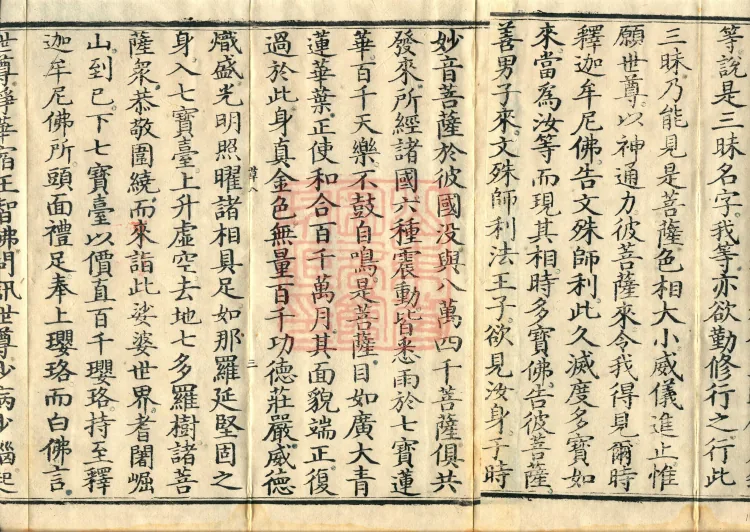 等說是三昧名字我等亦欲勤修行之行此
三昧乃能見是菩薩色相大小威儀進止惟
願世尊以神通力彼菩薩來令我得見爾時
釋迦牟尼佛告文殊師利此久滅度多寶如
來當為汝等而現其相時多寶佛告彼菩薩
善男子來文殊師利法王子欲見汝身于時
妙音菩薩於彼國没與八萬四千菩薩俱共
發來所經諸國六種震動皆悉雨於七寶蓮
華百千天樂不鼓自鳴是菩薩目如廣大青
蓮華葉正使和合百千萬月其面貌端正復
過於此身真金色無量百千功德莊嚴威德
熾盛光明照曜諸相具足如那羅延堅固之
身入七寶臺上升虛空去地七多羅樹諸菩
薩衆恭敬圍繞而來詣此娑婆世界耆闍崛
山到已下七寶臺以價直百千瓔珞持至釋
迦牟尼佛所頭面禮足奉上瓔珞而白佛言
世尊淨華宿王智佛問訊世尊少病少惱起